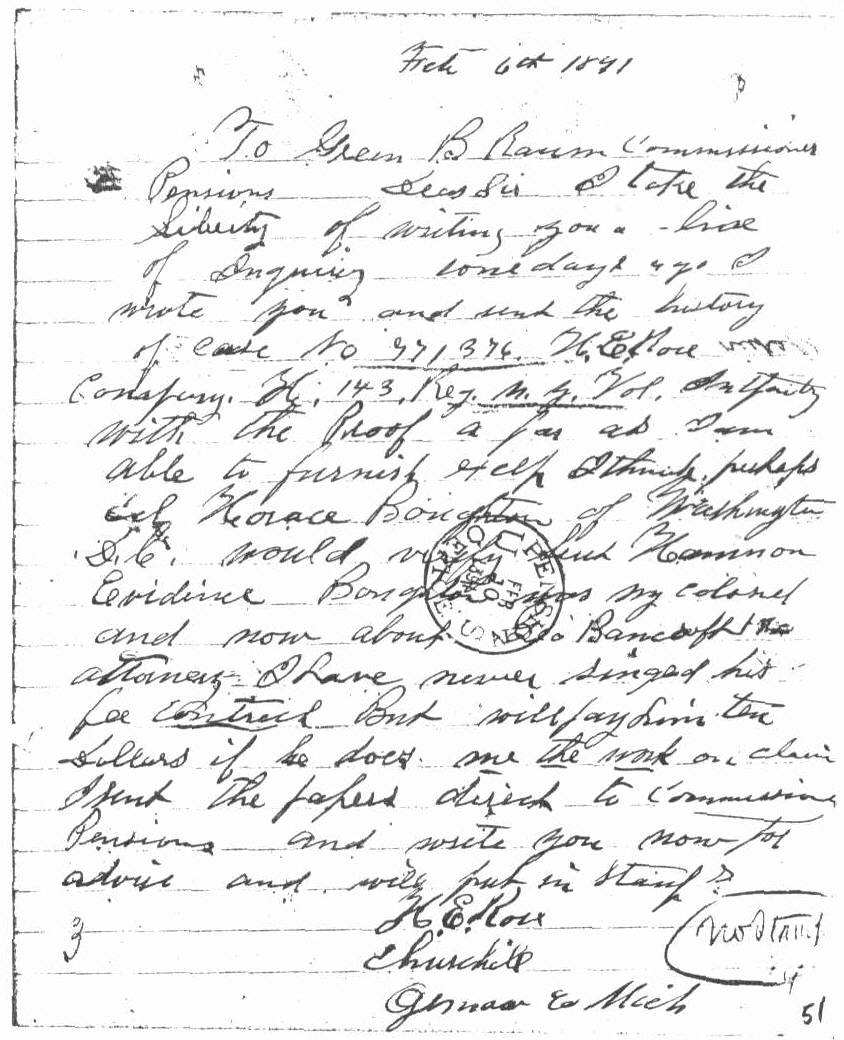 Feb 6th 1891
To Green B Raum Commissioner
Pensions Dear Sir I take the
Liberty of writing you a line
of Inquiry some days ago I
wrote you and send the history
of case No 971376. H.E. Rose
Company. H. 143. Reg. N.Y. Vol. Infanty
with the Proof a far as I am
able to furnish exelp I think perhaps
Col Horace Boughton of Washington
D.C. would
Evidence Boughton was my colonel
and now about Bancroft the
attorney I have never singed his
fee contract But will pay him ten
Dollars if he does me the work on claim
I sent the papers direct to Commissioner
Pensions and write you now for
advise and will put in Stamp
H.E. Rose
Churchill
3
No Stamp
Co Mich
51
U.S. PENSION OFFICE
FEB 10